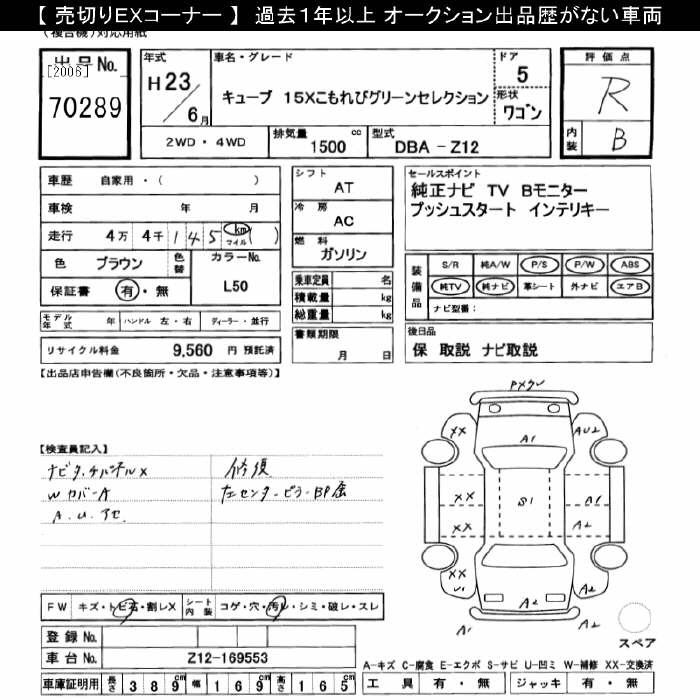 【 売切りEXコーナー 】 過去1年以上 オークション出品歴がない車両
(複合機)対応用紙
出品No.
[2006]
70289
年式
H 23 / 6月
車名・グレード
キューブ 15Xこもれびグリーンセレクション
ドア
5
形状
ワゴン
評価点
R
内装
B
2WD・4WD
排気量
1500 cc
型式
DBA - Z12
車歴 自家用・( )
車検 年 月
走行 4万 4千 1 4 5 km マイル ( )
色 ブラウン
色替
カラーNo.
L50
保証書 有・無
モデル年式 年
ハンドル 左・右
ディーラー・並行
リサイクル料金 9,560 円 預託済
シフト
AT
冷房
AC
燃料
ガソリン
乗車定員 名
積載量 kg
総重量 kg
書類期限
月 日
セールスポイント
純正ナビ TV Bモニター
プッシュスタート インテリキー
装備品
S/R 純A/W P/S P/W ABS
純TV 純ナビ 革シート 外ナビ エアB
ナビ型番：
後日品
保 取説 ナビ取説
【出品店申告欄(不良箇所・欠品・注意事項等)】
【検査員記入】
W カバーA
A.U.
修復
左センターピラー
XX
A1
AU2
XX
S1
A1
XX
A2
XX
U1
A2
A2
A1
A2
スペア
FW キズ・トビ石・割レX
シート内装 コゲ・穴・汚レ・シミ・破レ・スレ
登録No.
車台No. Z12-169553
A-キズ C-腐食 E-エクボ S-サビ U-凹ミ W-補修 XX-交換済
車庫証明用 長さ 3 8 9 cm 幅 1 6 9 cm 高さ 1 6 5 cm
工具 有・無 ジャッキ 有・無